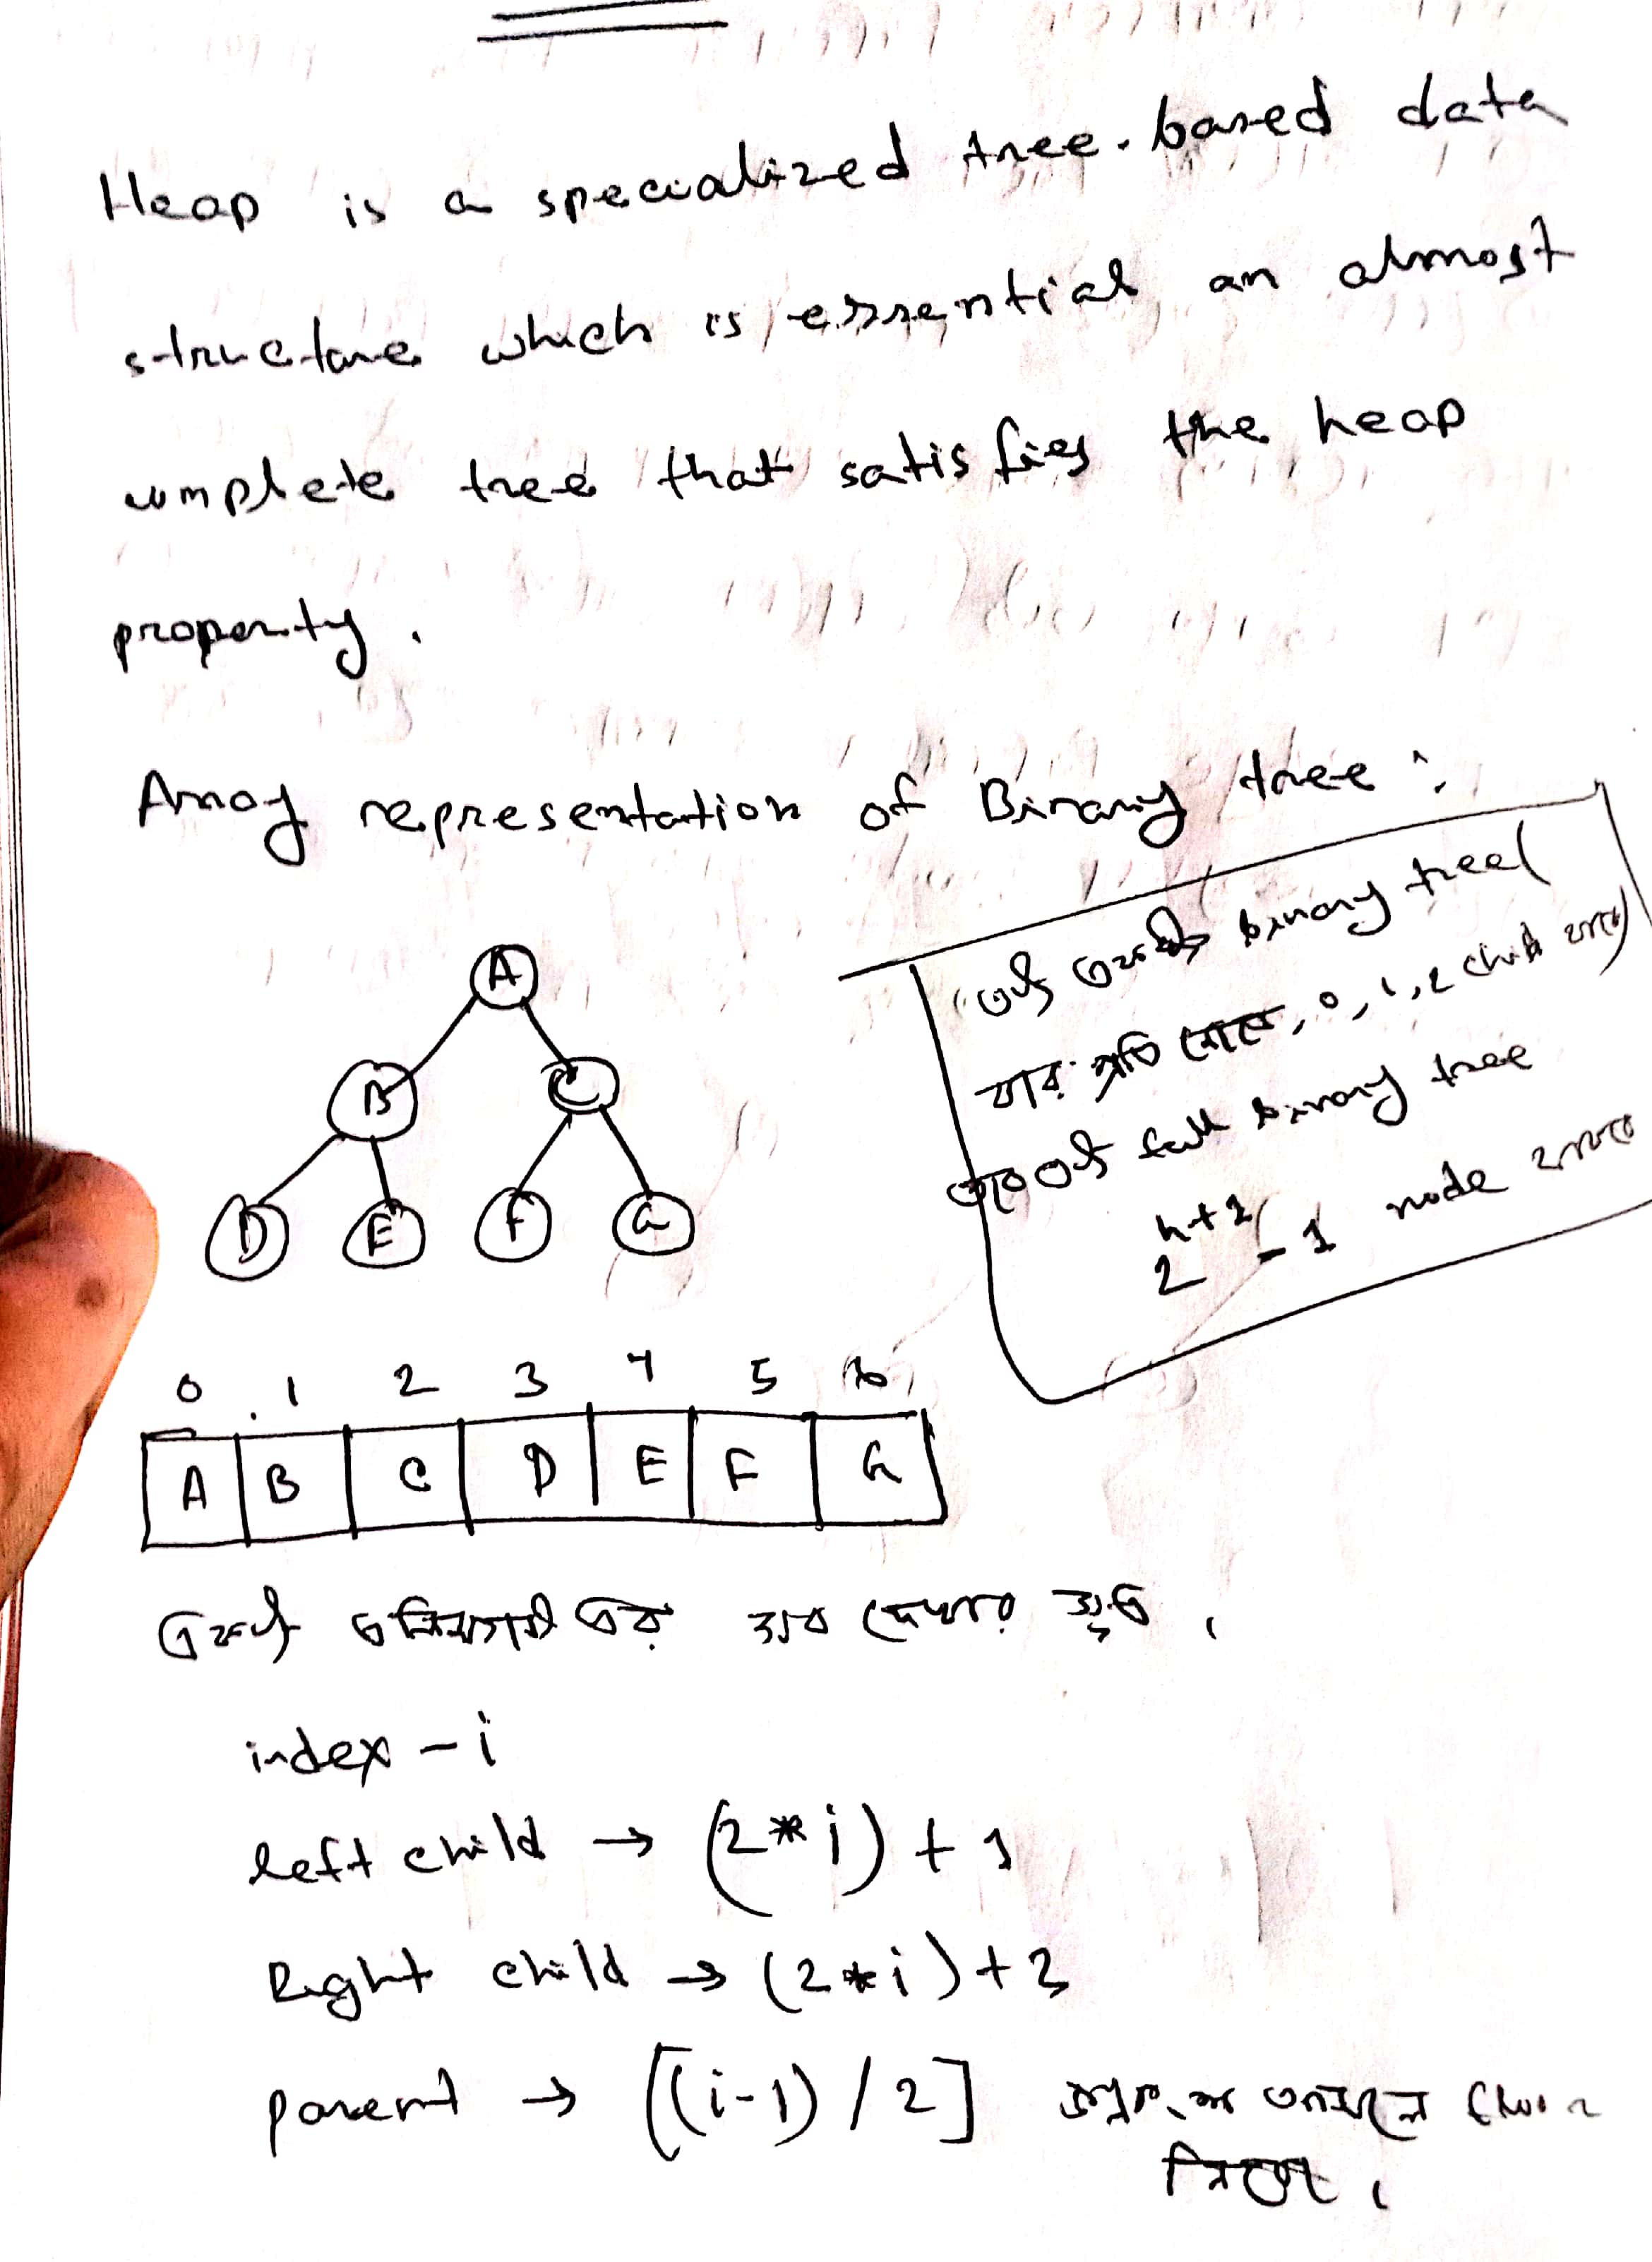 Heap is a specialized tree-based data
structure which is essential an almost
complete tree that satisfies the heap
property.
Array representation of Binary tree:
এই binary tree
যার প্রতি নোডে, 0, 1, 2 child থাকে
full binary tree
2^h+1 - 1 node থাকবে
A
B C
D E F G
0 1 2 3 4 5 6
A B C D E F G
একটা এর দেখার সূত্র।
index - i
left child → (2*i) + 1
Right child → (2*i) + 2
parent → [(i-1)/2] floor
নিবো।